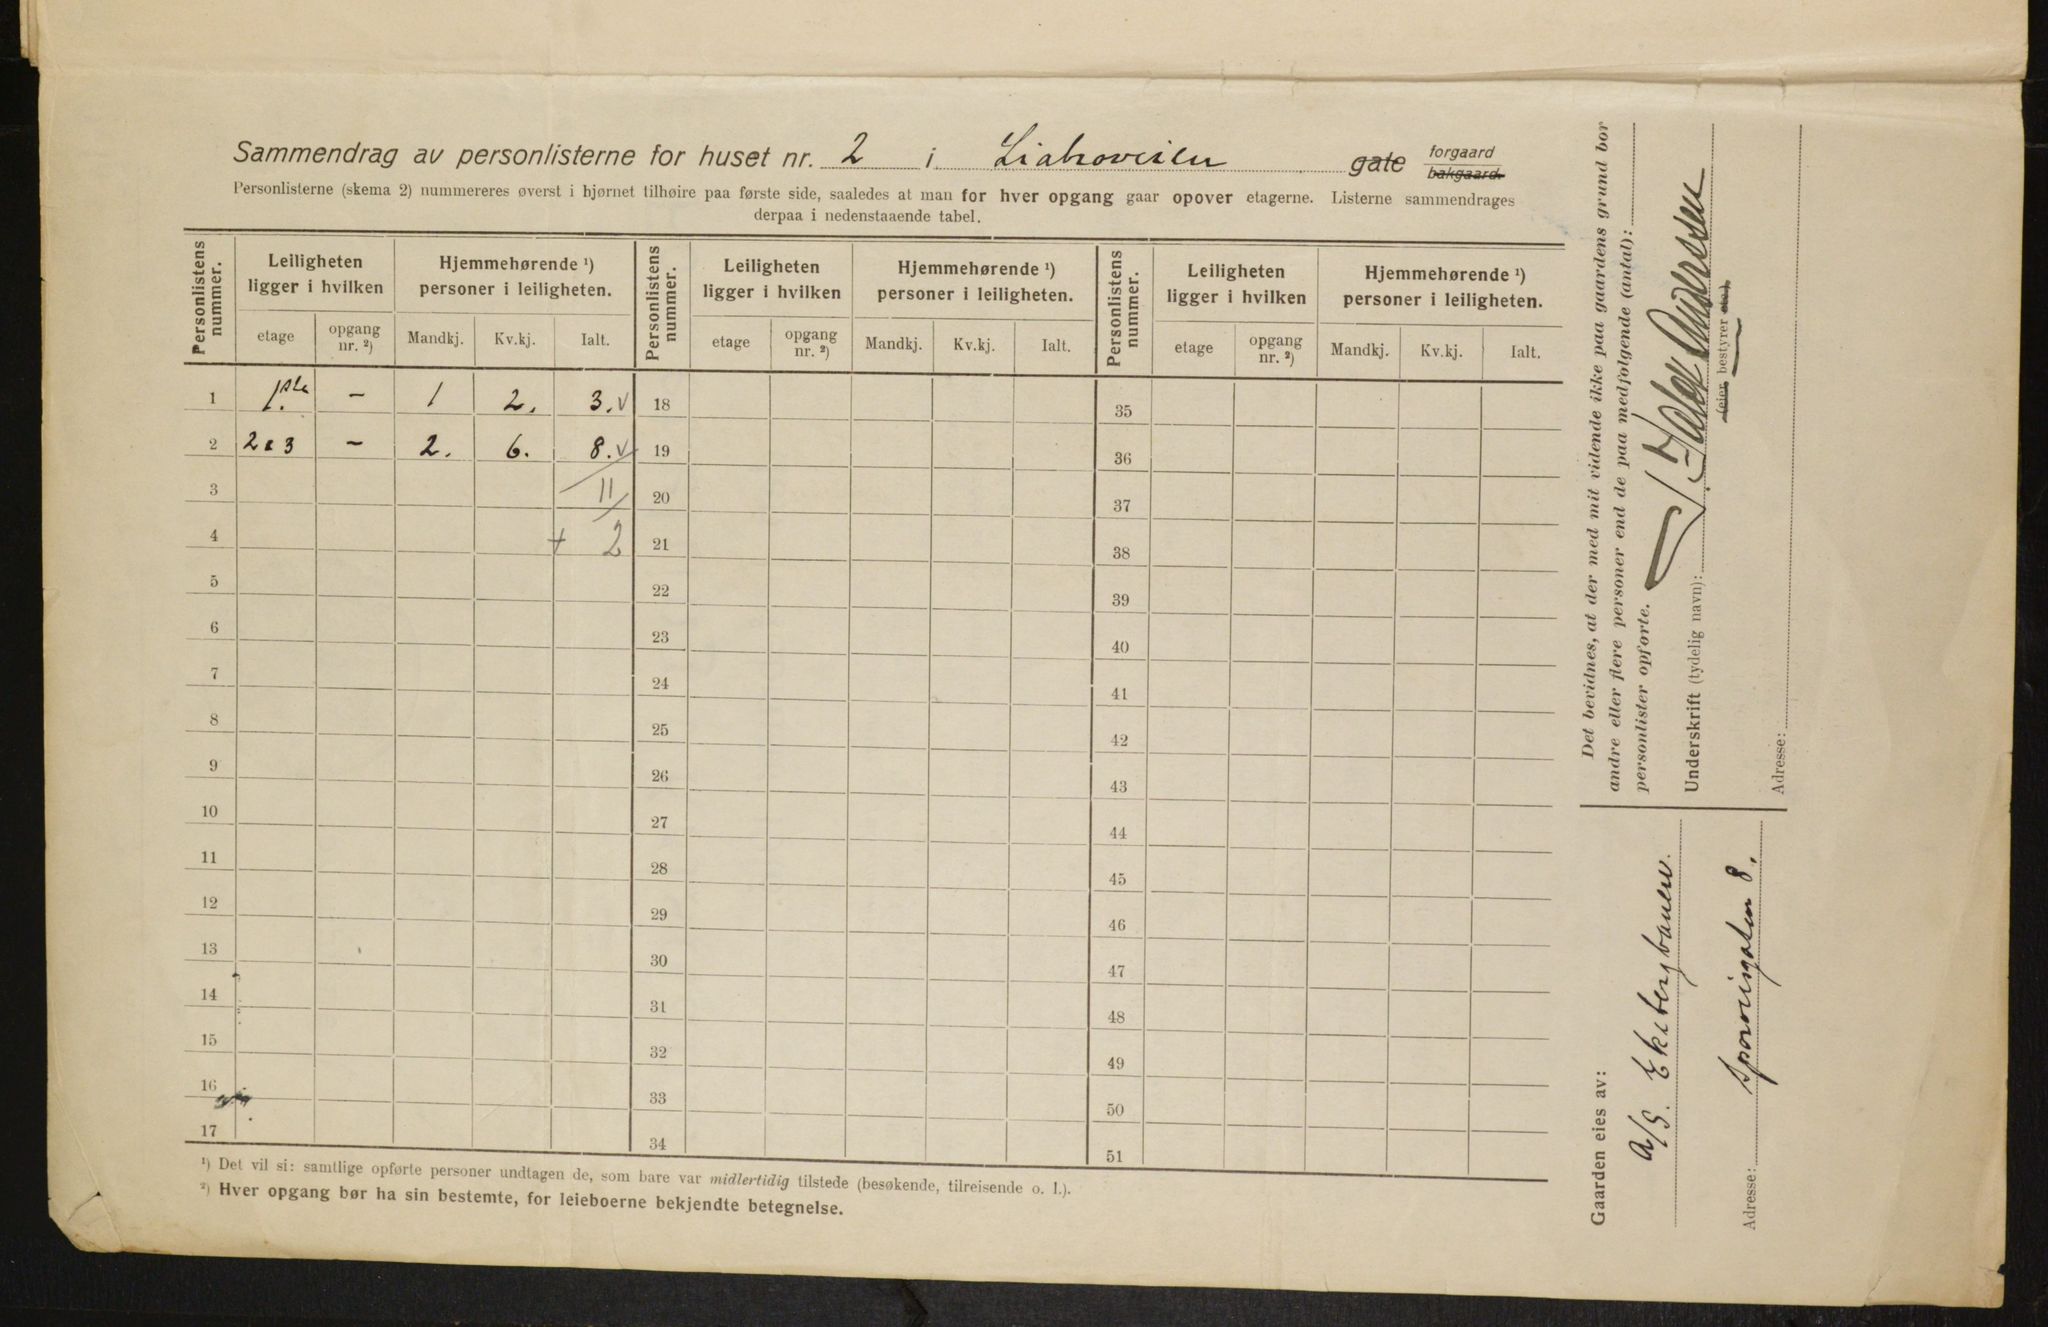 Sammendrag av personlisterne for huset nr. 2 i Liabroveien gate forgaard bakgaard.
Personlisterne (skema 2) nummereres øverst i hjørnet tilhøire paa første side, saaledes at man for hver opgang gaar opover etagerne. Listerne sammendrages
derpaa i nedenstaaende tabel.
Personlistens nummer. Leiligheten ligger i hvilken Hjemmehørende ¹) personer i leiligheten. Personlistens nummer. Leiligheten ligger i hvilken Hjemmehørende ¹) personer i leiligheten. Personlistens nummer. Leiligheten ligger i hvilken Hjemmehørende ¹) personer i leiligheten.
etage opgang nr. ²) Mandkj. Kv.kj. Ialt. etage opgang nr. ²) Mandkj. Kv.kj. Ialt. etage opgang nr. ²) Mandkj. Kv.kj. Ialt.
1 1.ste – 1 2. 3. v 18 35
2 2 & 3 – 2. 6. 8. v 19 36
3 11 20 37
4 + 2 21 38
5 22 39
6 23 40
7 24 41
8 25 42
9 26 43
10 27 44
11 28 45
12 29 46
13 30 47
14 31 48
15 32 49
16 33 50
17 34 51
¹) Det vil si: samtlige opførte personer undtagen de, som bare var midlertidig tilstede (besøkende, tilreisende o. l.).
²) Hver opgang bør ha sin bestemte, for leieboerne bekjendte betegnelse.
Det bevidnes, at der med mit vidende ikke paa gaardens grund bor
andre eller flere personer end de paa medfølgende (antal):
personlister opførte.
Underskrift (tydelig navn): Andersen
(eier, bestyrer etc.)
Adresse:
Gaarden eies av:
A/S. Ekebergbanen.
Adresse: 8.